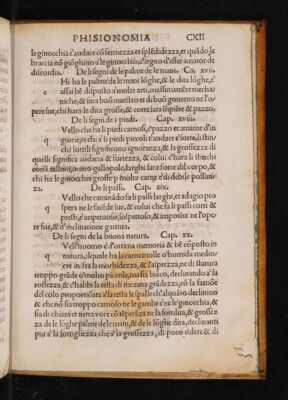 PHISIONOMIA CXII
le ginocchia è audace cō fermezza et splēdidezza, et quādo le
braccia nō giōghino a le ginocchia, è īrgno d'esser amator de
discordia. De li segni de le palme de le mani. Ca. xvii.
Hi ha le palme de le mani lōghe, & le dita lōghe, è
c assai bē disposto a molte arti, massimamēte mecha/
niche, & sira buō maestro et di buō governo ne l'o/
pere sue, chi hara le dita grosse, & corte sara ispido & pazzo.
De li segni de i piedi. Cap. xviii.
Vello che ha li piedi carnosi, è pazzo et amator d'in
q giurie, et chi à li piedi piccoli è audace è forte, li stin/
chi sottili significano ignoranza, & la grossezza di
quelli significa audacia & fortezza, & colui c'hara li stinchi
con li talloni, o vero gallopole, larghi sara forte di corpo, &
chi ha le ginocchia grosse p molta carne è di debile possan/
za. De li passi. Cap. xix.
Vello che caminādo fa li passi larghi, et adagio pro
q spera ne le facēde lue, & colui che fa li passi corti &
presti, è impetuoso, sospettoso, & impotēte ne l'ope
re sue, & d'inclinatione cattiva.
De li segni de la buona natura. Cap. xx.
Vell'huomo è d'ottima memoria & bē cōposto in
q natura, il quale ha la carne molle o' humida medio/
cre in fra la morbidezza, & l'asprezza, ne di statura
troppo grāde o' molto piccola, ma sia bianco, declinando a la
rossezza, & c'habbi la testa di mezana grādezza, cō la fattiōe
del colo proportionata a la testa le spalle ch'alquāto declinino
& che nō sia troppo carnoso ne le gambe ne le ginocchia, &
sia di chiara et netta voce cō tēperāza ne la sottilita, & grossez
za de le lōghe palme de le mani, & de le lōghe dita, declinanti
piu à la sottigliezza che a' la grossezza, di poco ridere & di